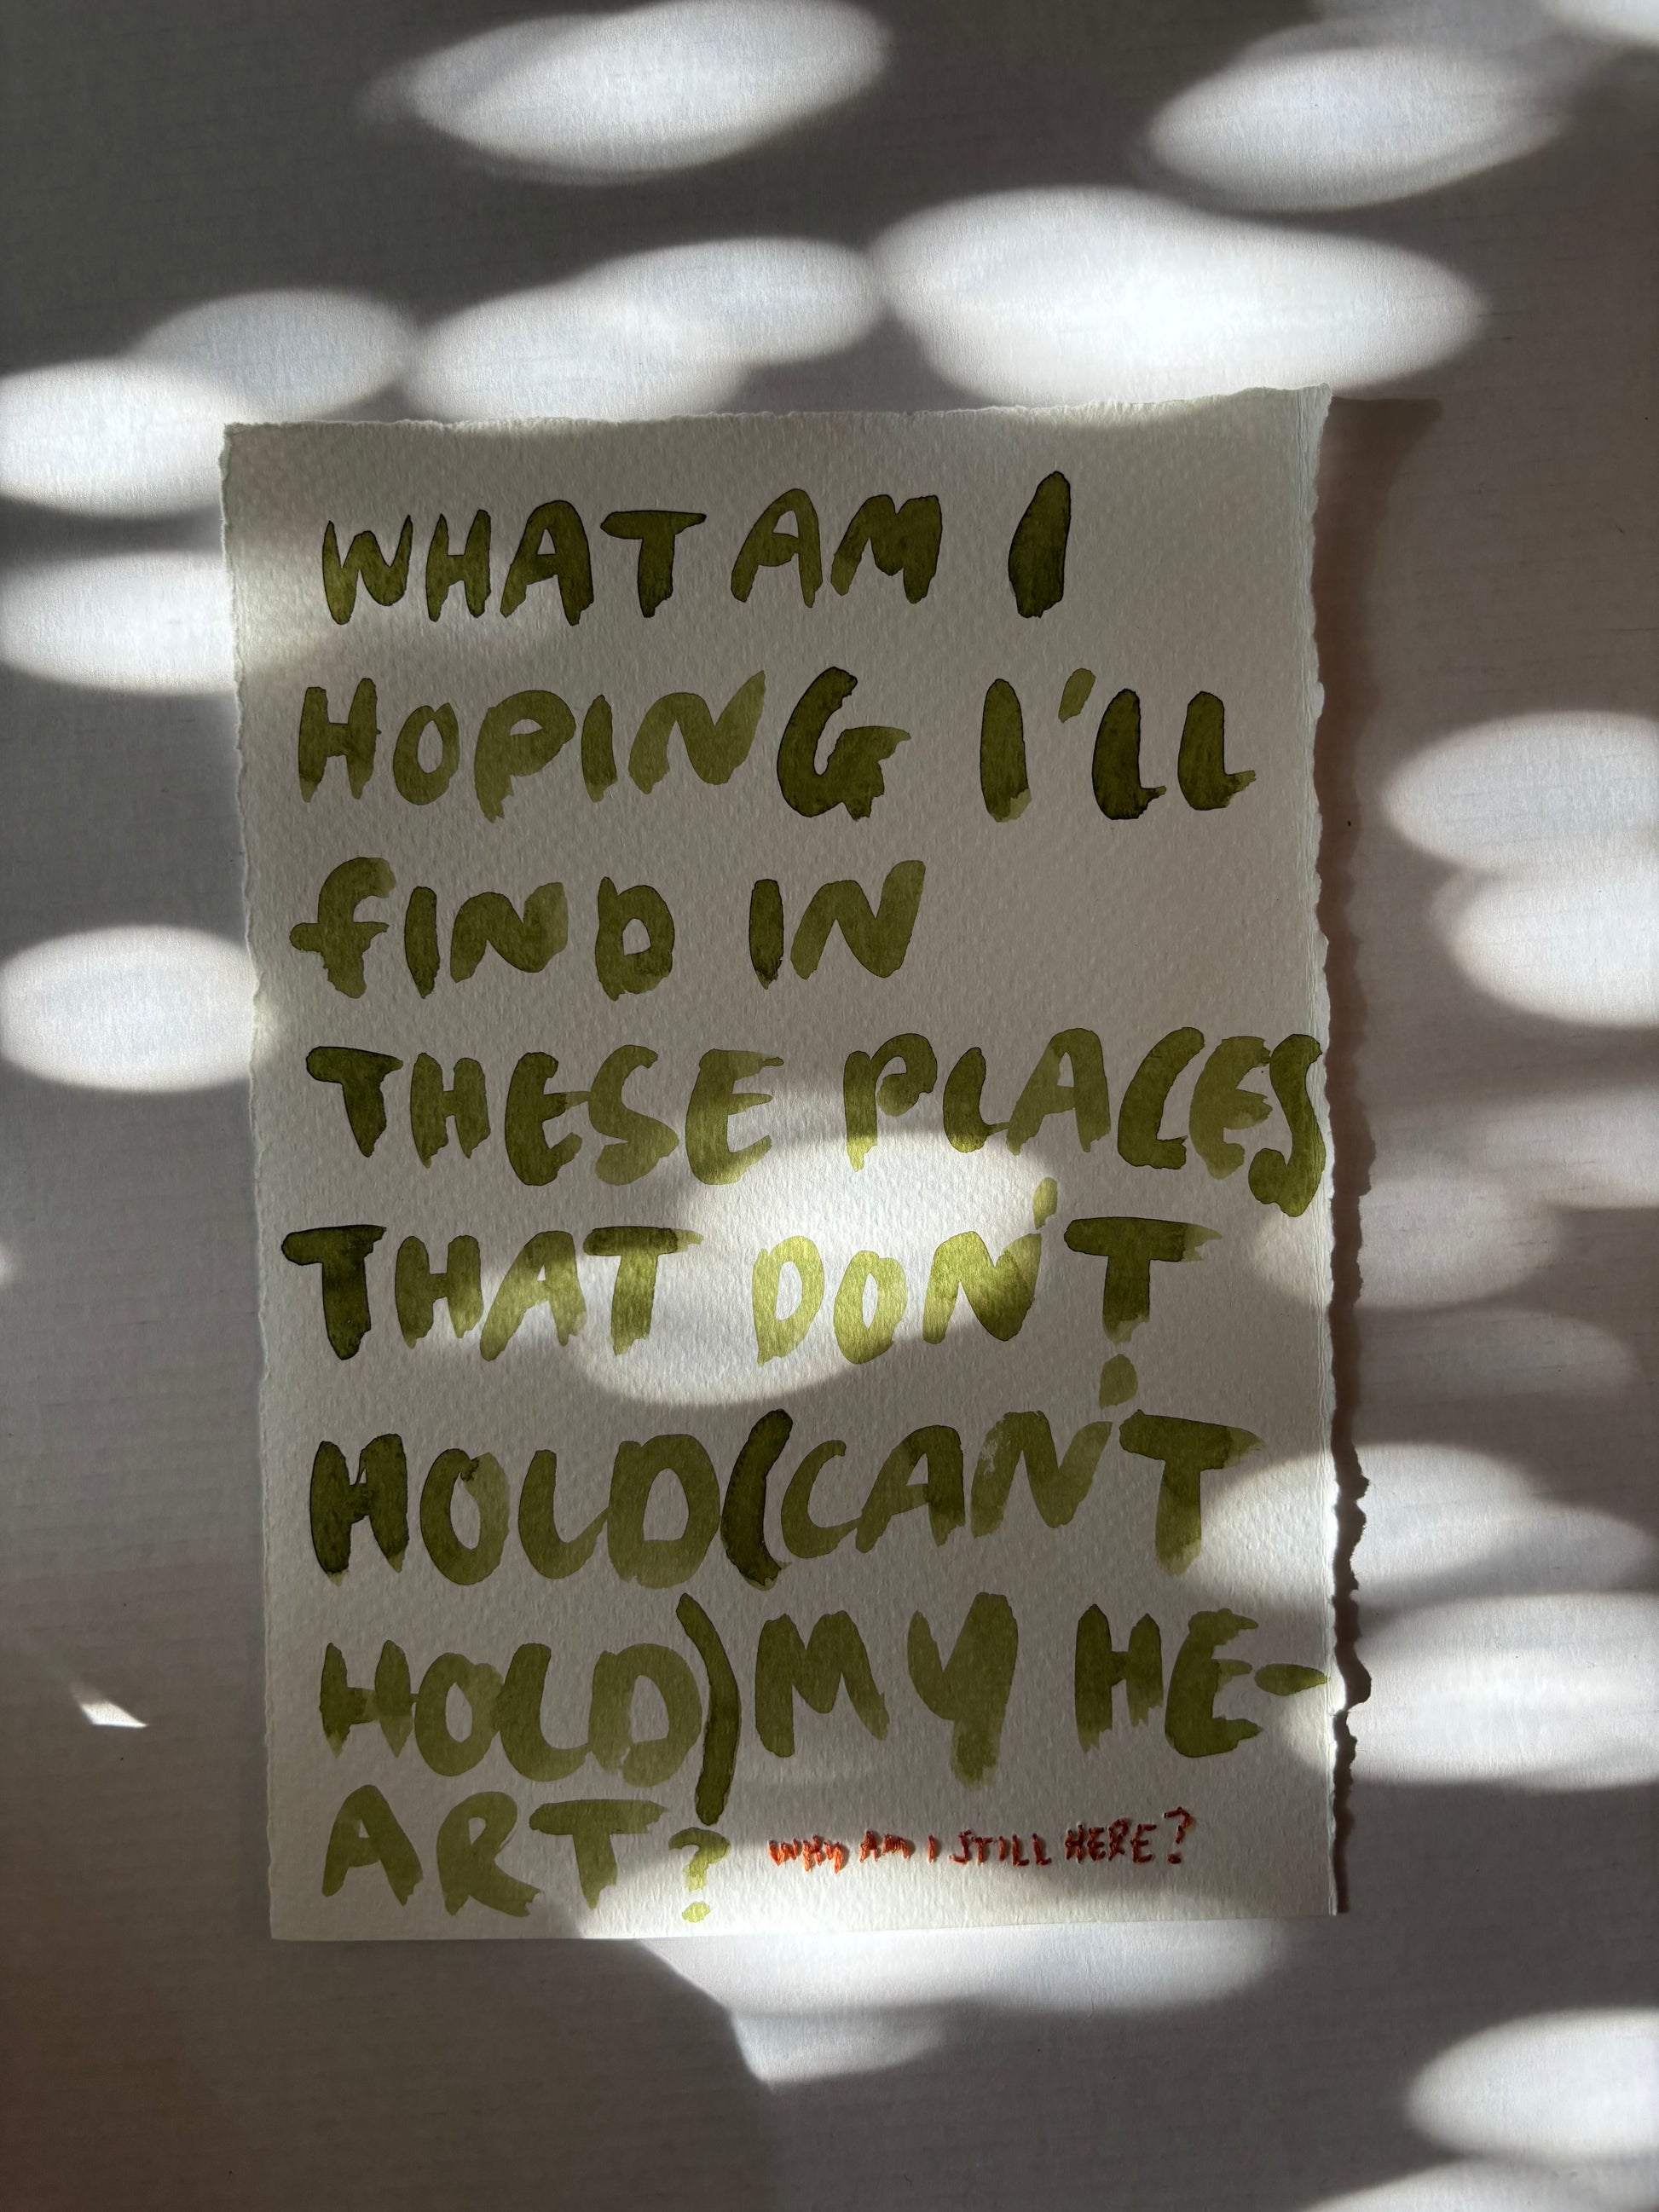 WHAT AM I
HOPING I'LL
fIND IN
THESE PLACES
THAT DON'T
HOLD (CAN'T
HOLD) MY HE-
ART?
WHY AM I STILL HERE?